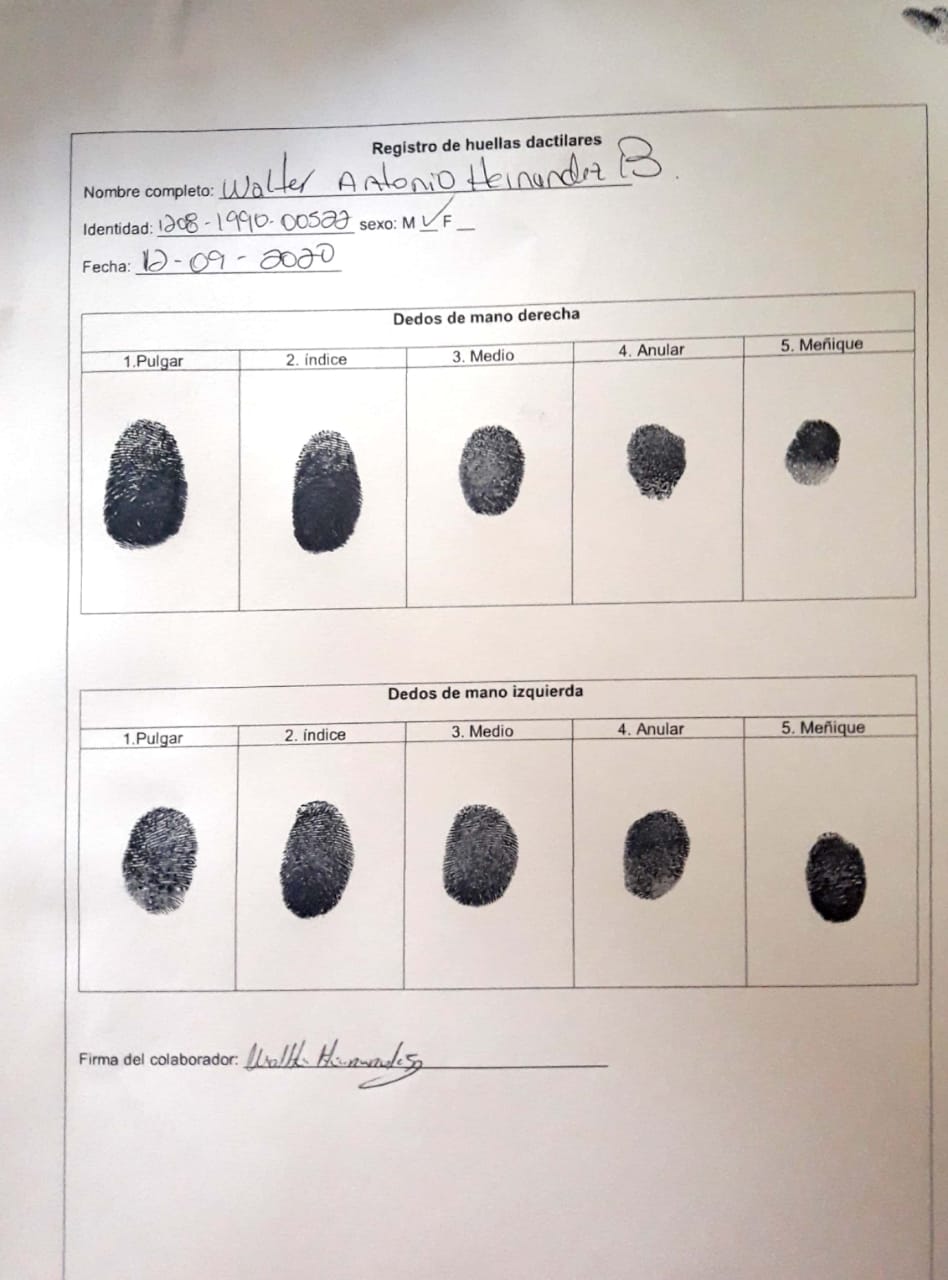 Registro de huellas dactilares
Nombre completo: Walter Antonio Hernandez B.
Identidad: 1208-1990-00522 sexo: M ✓ F __
Fecha: 12-09-2020
Dedos de mano derecha
1.Pulgar 2. índice 3. Medio 4. Anular 5. Meñique
Dedos de mano izquierda
1.Pulgar 2. índice 3. Medio 4. Anular 5. Meñique
Firma del colaborador: Walter Hernandez